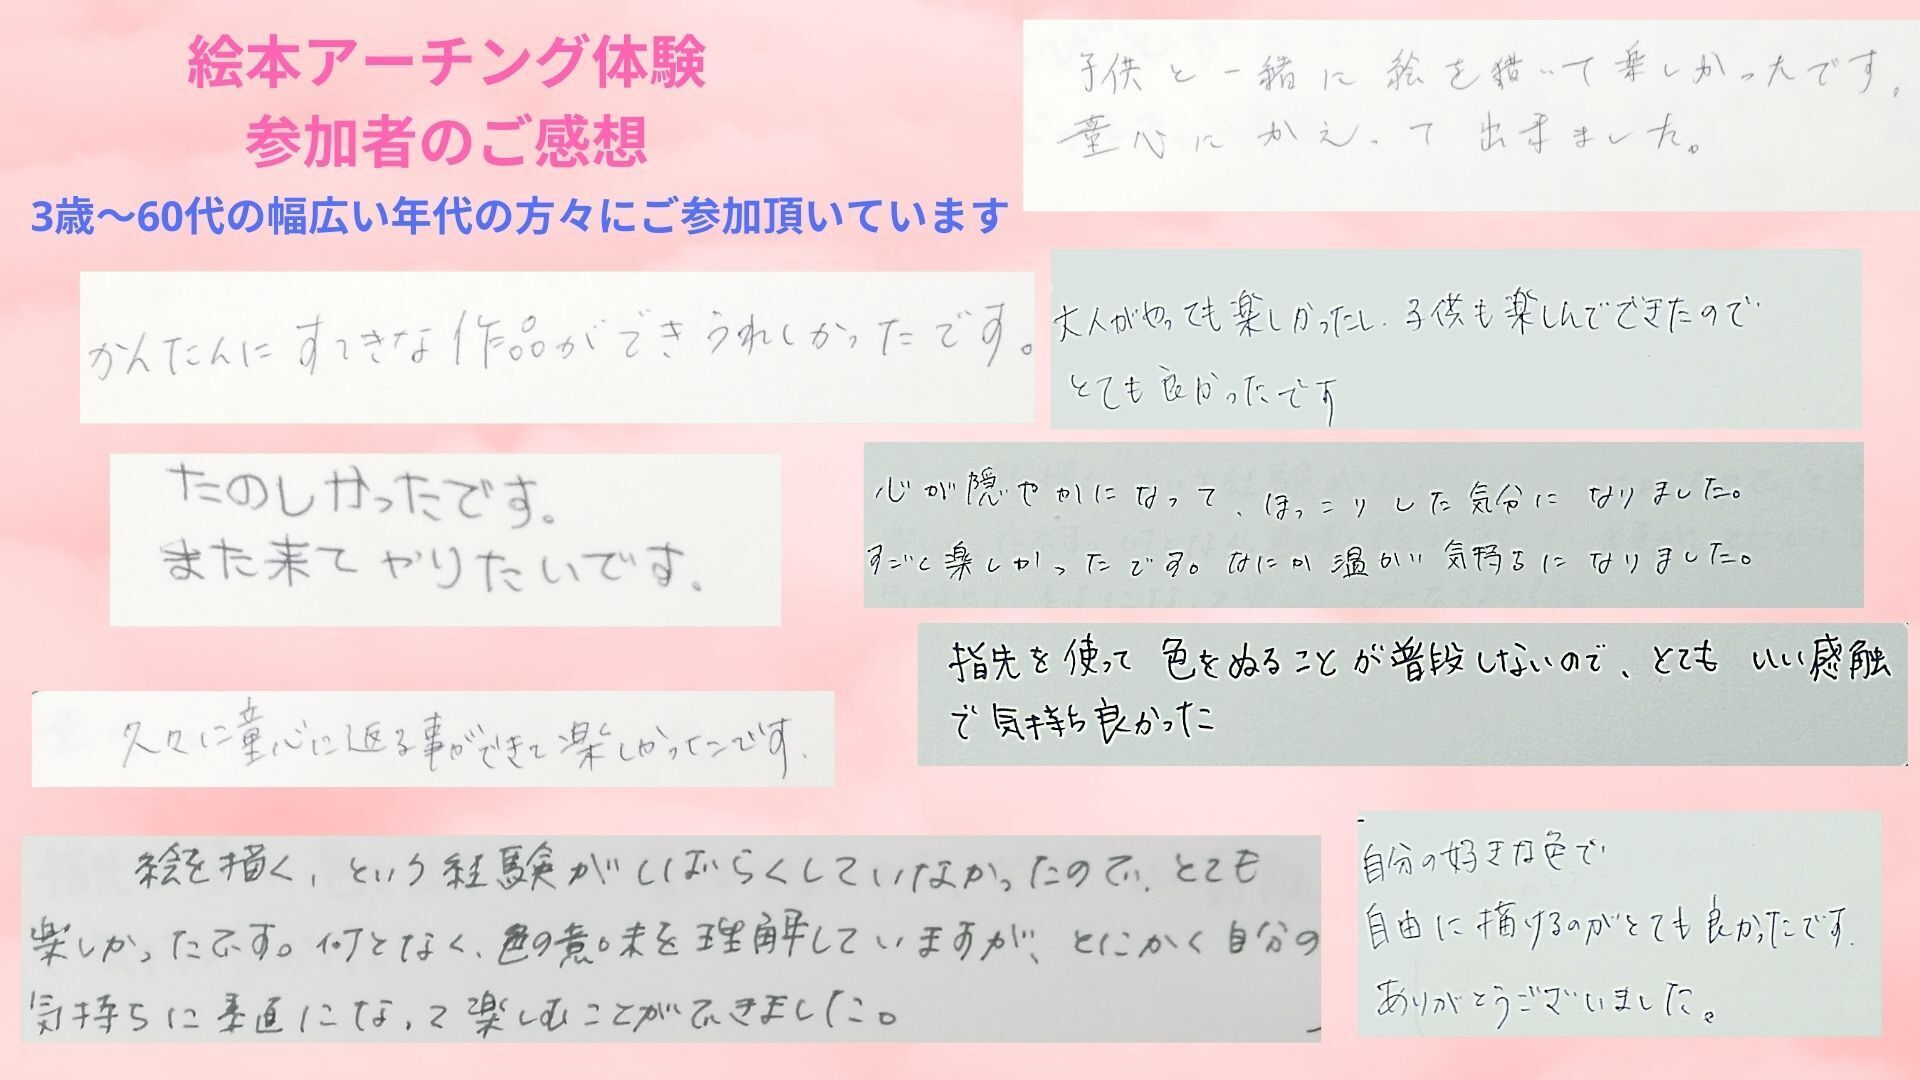 絵本アーチング体験
参加者のご感想
3歳〜60代の幅広い年代の方々にご参加頂いています
子供と一緒に絵を描いて楽しかったです。
童心にかえって出来ました。
かんたんにすてきな作品ができうれしかったです。
大人がやっても楽しかったし、子供も楽しんでできたので
とても良かったです
たのしかったです。
また来てやりたいです。
心が隠やかになって、ほっこりした気分になりました。
すごく楽しかったです。なにか温かい気持ちになりました。
指先を使って色をぬることが普段しないので、とてもいい感触
で気持ち良かった
久々に童心に返る事ができて楽しかったです.
絵を描く、という経験がしばらくしていなかったので、とても
楽しかったです。何となく、色の意味を理解していますが、とにかく自分の
気持ちに素直になって楽しむことができました。
自分の好きな色で
自由に描けるのがとても良かったです.
ありがとうございました。